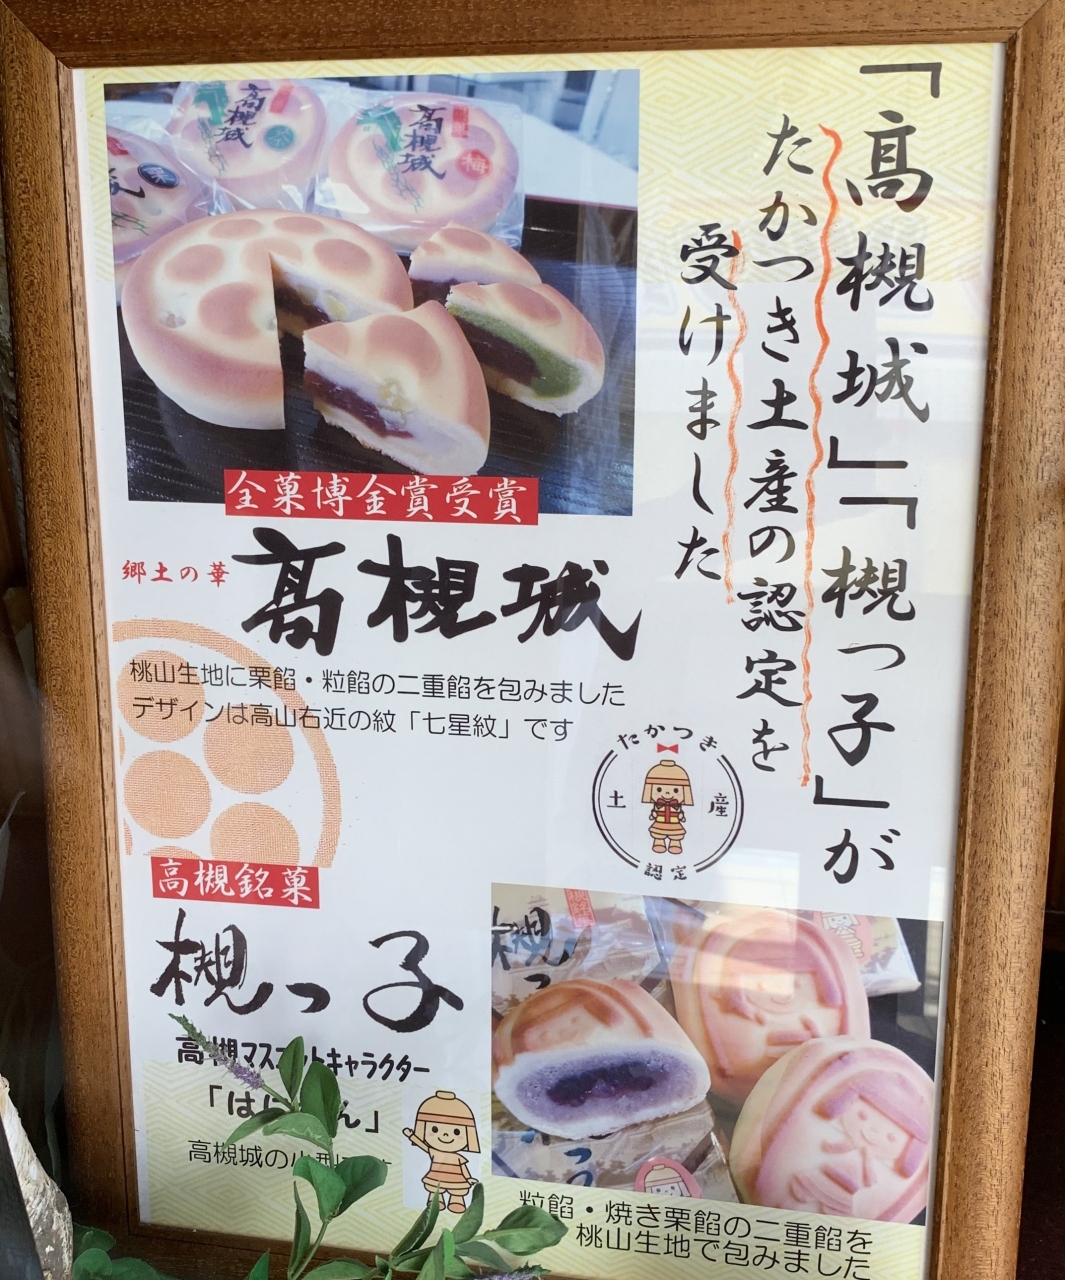 「髙槻城」「槻っ子」が
たかつき土産の認定を
受けました
高槻城
高槻城
梅
栗
全菓博金賞受賞
郷土の華
髙槻城
桃山生地に栗餡・粒餡の二重餡を包みました
デザインは高山右近の紋「七星紋」です
たかつき
土産
認定
高槻銘菓
槻っ子
高槻マスコットキャラクター
「は
ん」
高槻城の小型
槻っ
粒餡・焼き栗餡の二重餡を
桃山生地で包みました